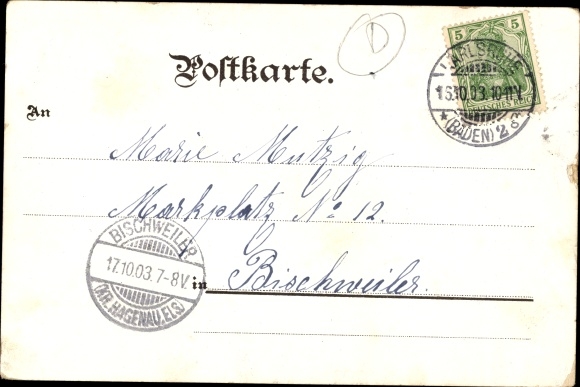 Postkarte.
5 5
DEUTSCHES REICH
KARLSRUHE
16.10.03.10-11V.
* (BADEN) 2
An
Marie Mutzig
Markplatz No 12.
BISCHWEILER
17.10.03.7-8V.
(KR. HAGENAU, ELS)
in Bischweiler.